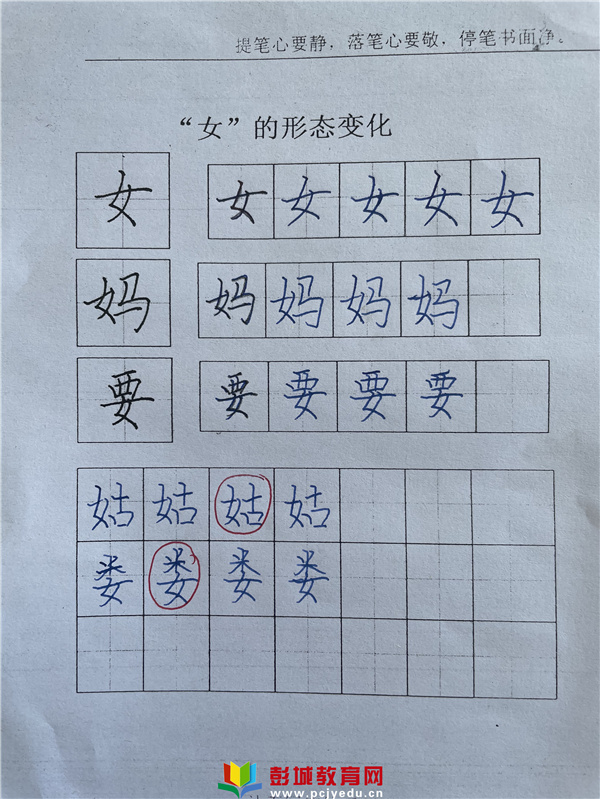 提笔心要静，落笔心要敬，停笔书面净。
“女”的形态变化
女 女 女 女 女 女
妈 妈 妈 妈 妈
要 要 要 要 要
姑 姑 姑 姑
娄 娄 娄 娄
彭城教育网
www.pcjyedu.cn